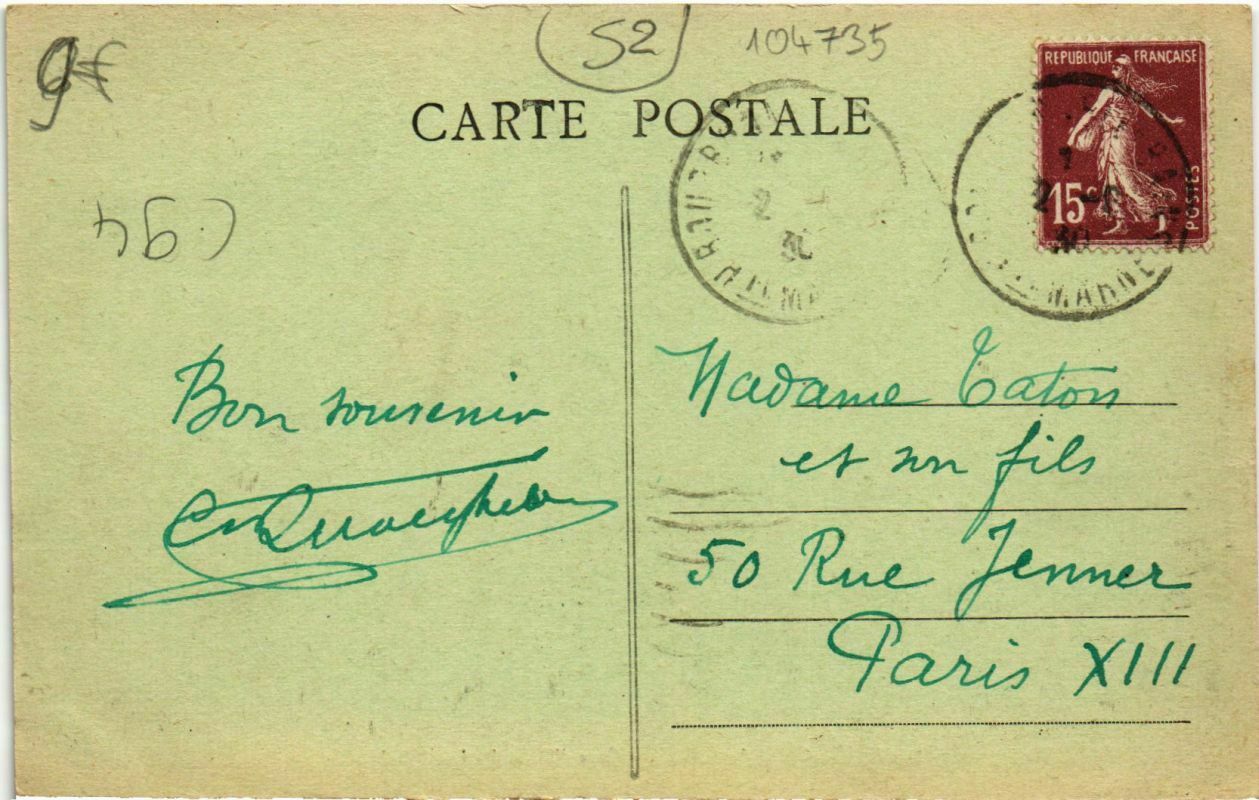 52
104735
CARTE POSTALE
REPUBLIQUE FRANÇAISE
15c
POSTES
2
30
Hte MARNE
Bon souvenir
Madame Taton
et son fils
50 Rue Jenner
Paris XIII